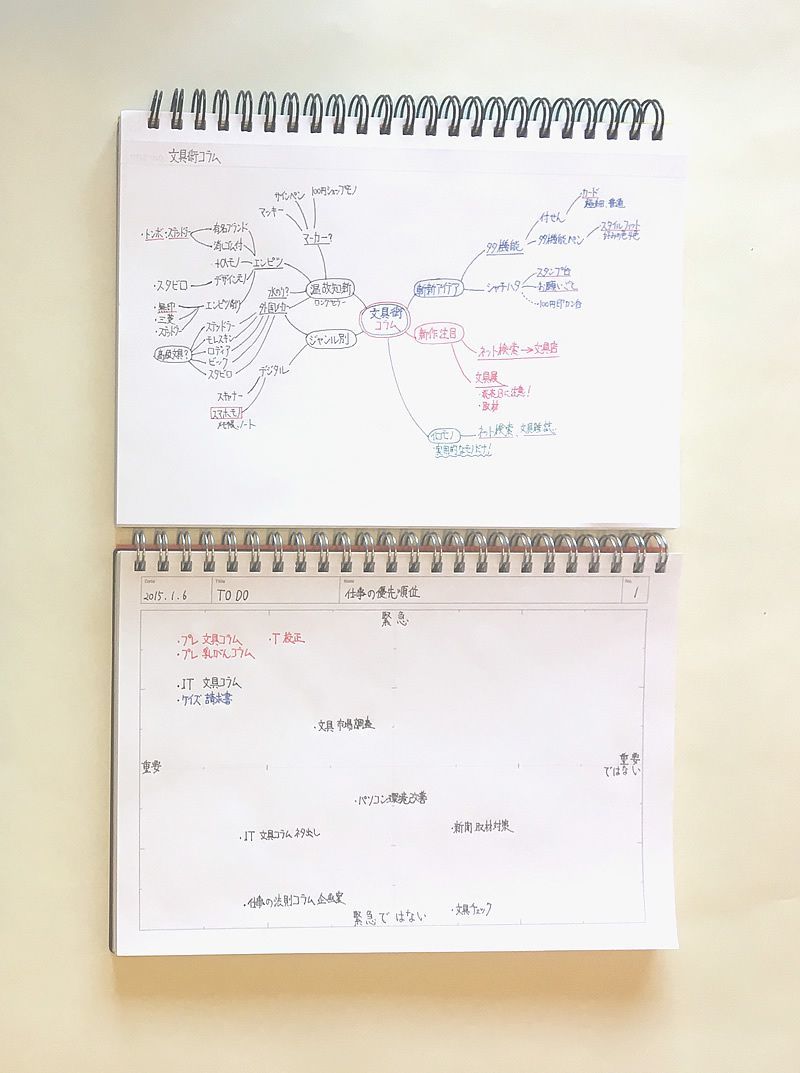 文具術コラム
サインペン
100円ショップモノ
マッキー
マーカー?
・トンボ・ステッドラー
有名ブランド
消しゴム付
エンピツ
デザインモノ
・スタビロ
エンピツ削り
・無印
・三菱
・ステッドラー
水のり?
外国メーカー
温故知新
ロングセラー
ステッドラー
モレスキン
ロディア
ビック
スタビロ
高級文具?
ジャンル別
デジタル
スキャナー
スマホモノ
ノート
文具術
コラム
斬新アイデア
多機能
付せん
カード
多機能ペン
スタイルフィット
シャチハタ
スタンプ台
お願いごと。
新作注目
ネット検索→文具店
文具展
・発売日に注意!
・取材
イロモノ
ネット検索、文具雑誌、
実用的なモノだけ!
Date
2015.1.6
Title
TO DO
Name
仕事の優先順位
No.
1
緊急
・プレ 文具コラム
・T 校正
・プレ 乳がんコラム
・IT 文具コラム
・ケイズ 請求書
・文具 市場調査
重要
重要
ではない
・パソコン環境改善
・IT 文具コラム ネタ出し
・新聞 取材対策
・仕事の法則コラム 企画案
・文具チェック
緊急ではない